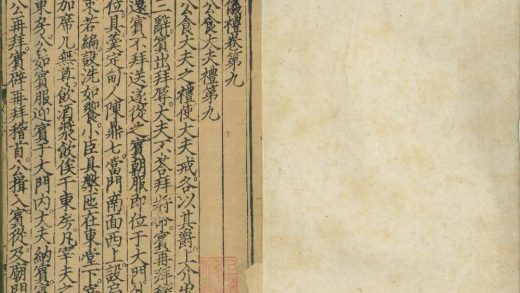 儀禮卷第九
公食大夫禮第九
公食大夫之禮使大夫戒各以其爵上介出
三辭賓出拜辱大夫不荅拜將命賓再拜稽
還賓不拜送遂從之賓朝服即位于大門外
位具羹定甸人陳鼎七當門南面西上設
束若編設洗如饗小臣具槃匜在東堂下宰
加席几無尊飲酒漿飲俟于東房凡宰夫之
東房公如賓服迎賓于大門內大夫納賓賓
公再拜賓辟再拜稽首公揖入賓從及廟門